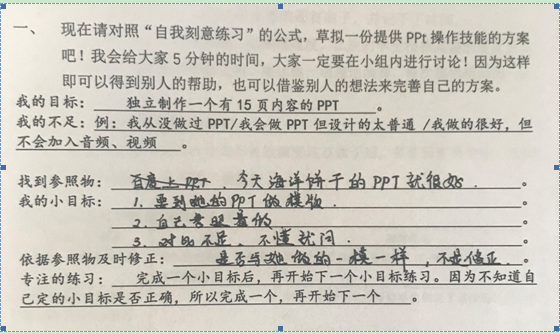 一、 现在请对照“自我刻意练习”的公式，草拟一份提供 PPt 操作技能的方案
吧！我会给大家 5 分钟的时间，大家一定要在小组内进行讨论！因为这样
即可以得到别人的帮助，也可以借鉴别人的想法来完善自己的方案。
我的目标： 独立制作一个有 15 页内容的 PPT 。
我的不足：例：我从没做过 PPT/我会做 PPT 但设计的太普通 /我做的很好，但
不会加入音频、视频 。
找到参照物：百度上PPT，今天海洋饼干的PPT就很好. 。
我的小目标： 1. 要到她的PPT的模版. 。
2. 自己去照着做 。
3. 对比不足、不懂就问. 。
依据参照物及时修正： 是否与她做的一模一样，不是修正. 。
专注的练习： 完成一个小目标后，再开始下一个小目标练习。因为不知道自
己定的小目标是否正确，所以完成一个，再开始下一个 。